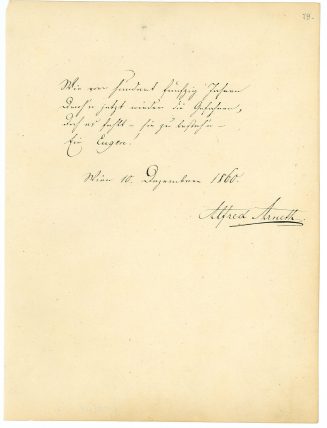 79.
Wie vor hundert fünfzig Jahren
Droh'n jetzt wieder die Gefahren,
Doch es fehlt – sie zu besteh'n –
Ein Eugen.
Wien 10. Dezember 1860.
Alfred Arneth